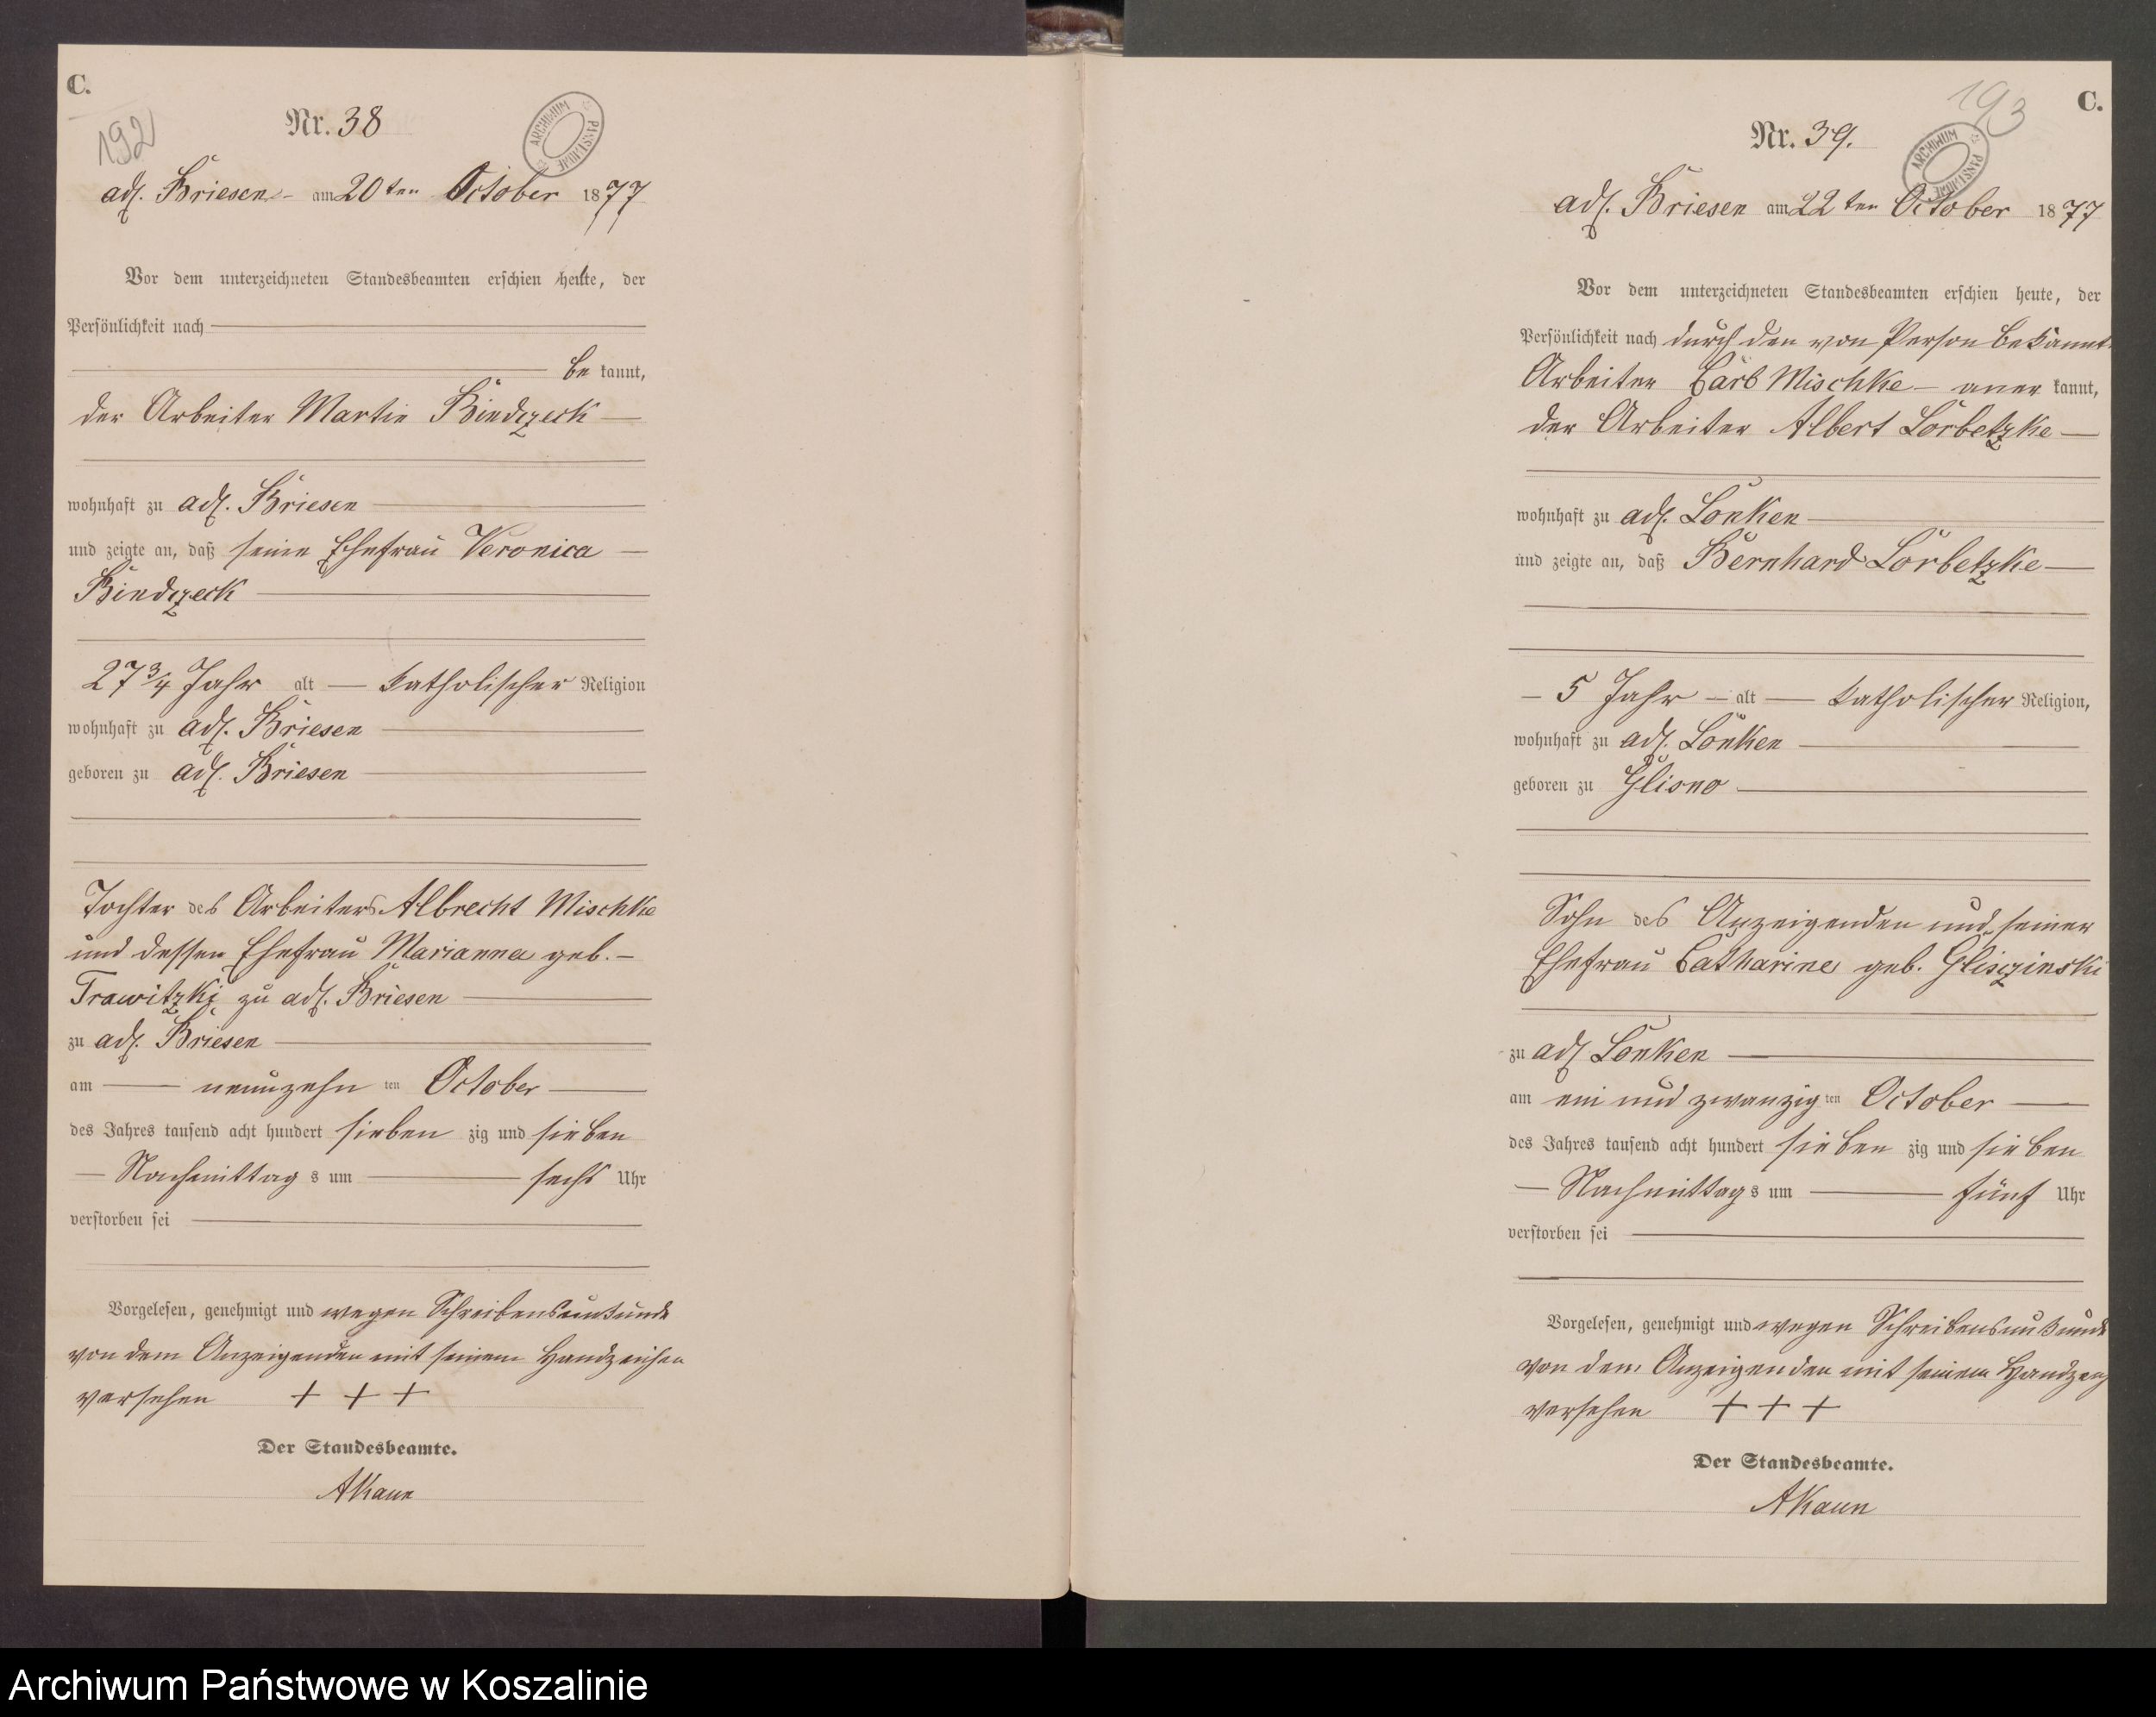 C.
192
Nr. 38
ARCHIWUM PAŃSTWOWE
adl. Briesen - am 20ten October 1877
Vor dem unterzeichneten Standesbeamten erschien heute, der
Persönlichkeit nach
be kannt,
der Arbeiter Martin Bindczeck
wohnhaft zu adl. Briesen
und zeigte an, daß seine Ehefrau Veronica
Bindczeck
27 3/4 Jahr alt katholischer Religion
wohnhaft zu adl. Briesen
geboren zu adl. Briesen
Tochter des Arbeiters Albrecht Mischke
und dessen Ehefrau Marianna geb. -
Trawitzki zu adl. Briesen
zu adl. Briesen
am neunzehn ten October
des Jahres tausend acht hundert sieben zig und sieben
Nachmittag s um sechs Uhr
verstorben sei
Vorgelesen, genehmigt und wegen Schreibensunkunde
von dem Anzeigenden mit seinem Handzeichen
versehen + + +
Der Standesbeamte.
AKaun
C.
193
Nr. 39.
ARCHIWUM PAŃSTWOWE
adl. Briesen am 22ten October 1877
Vor dem unterzeichneten Standesbeamten erschien heute, der
Persönlichkeit nach durch den von Person bekannt.
Arbeiter Carl Mischke - aner kannt,
der Arbeiter Albert Lorbetzke
wohnhaft zu adl. Lonken
und zeigte an, daß Bernhard Lorbetzke
5 Jahr alt katholischer Religion,
wohnhaft zu adl. Lonken
geboren zu Glisno
Sohn des Anzeigenden und seiner
Ehefrau Catharine geb. Glisczinski
zu adl Lonken
am ein und zwanzig ten October
des Jahres tausend acht hundert sieben zig und sieben
Nachmittag s um fünf Uhr
verstorben sei
Vorgelesen, genehmigt und wegen Schreibensunkunde
von dem Anzeigenden mit seinem Handzeich
versehen + + +
Der Standesbeamte.
AKaun
Archiwum Państwowe w Koszalinie